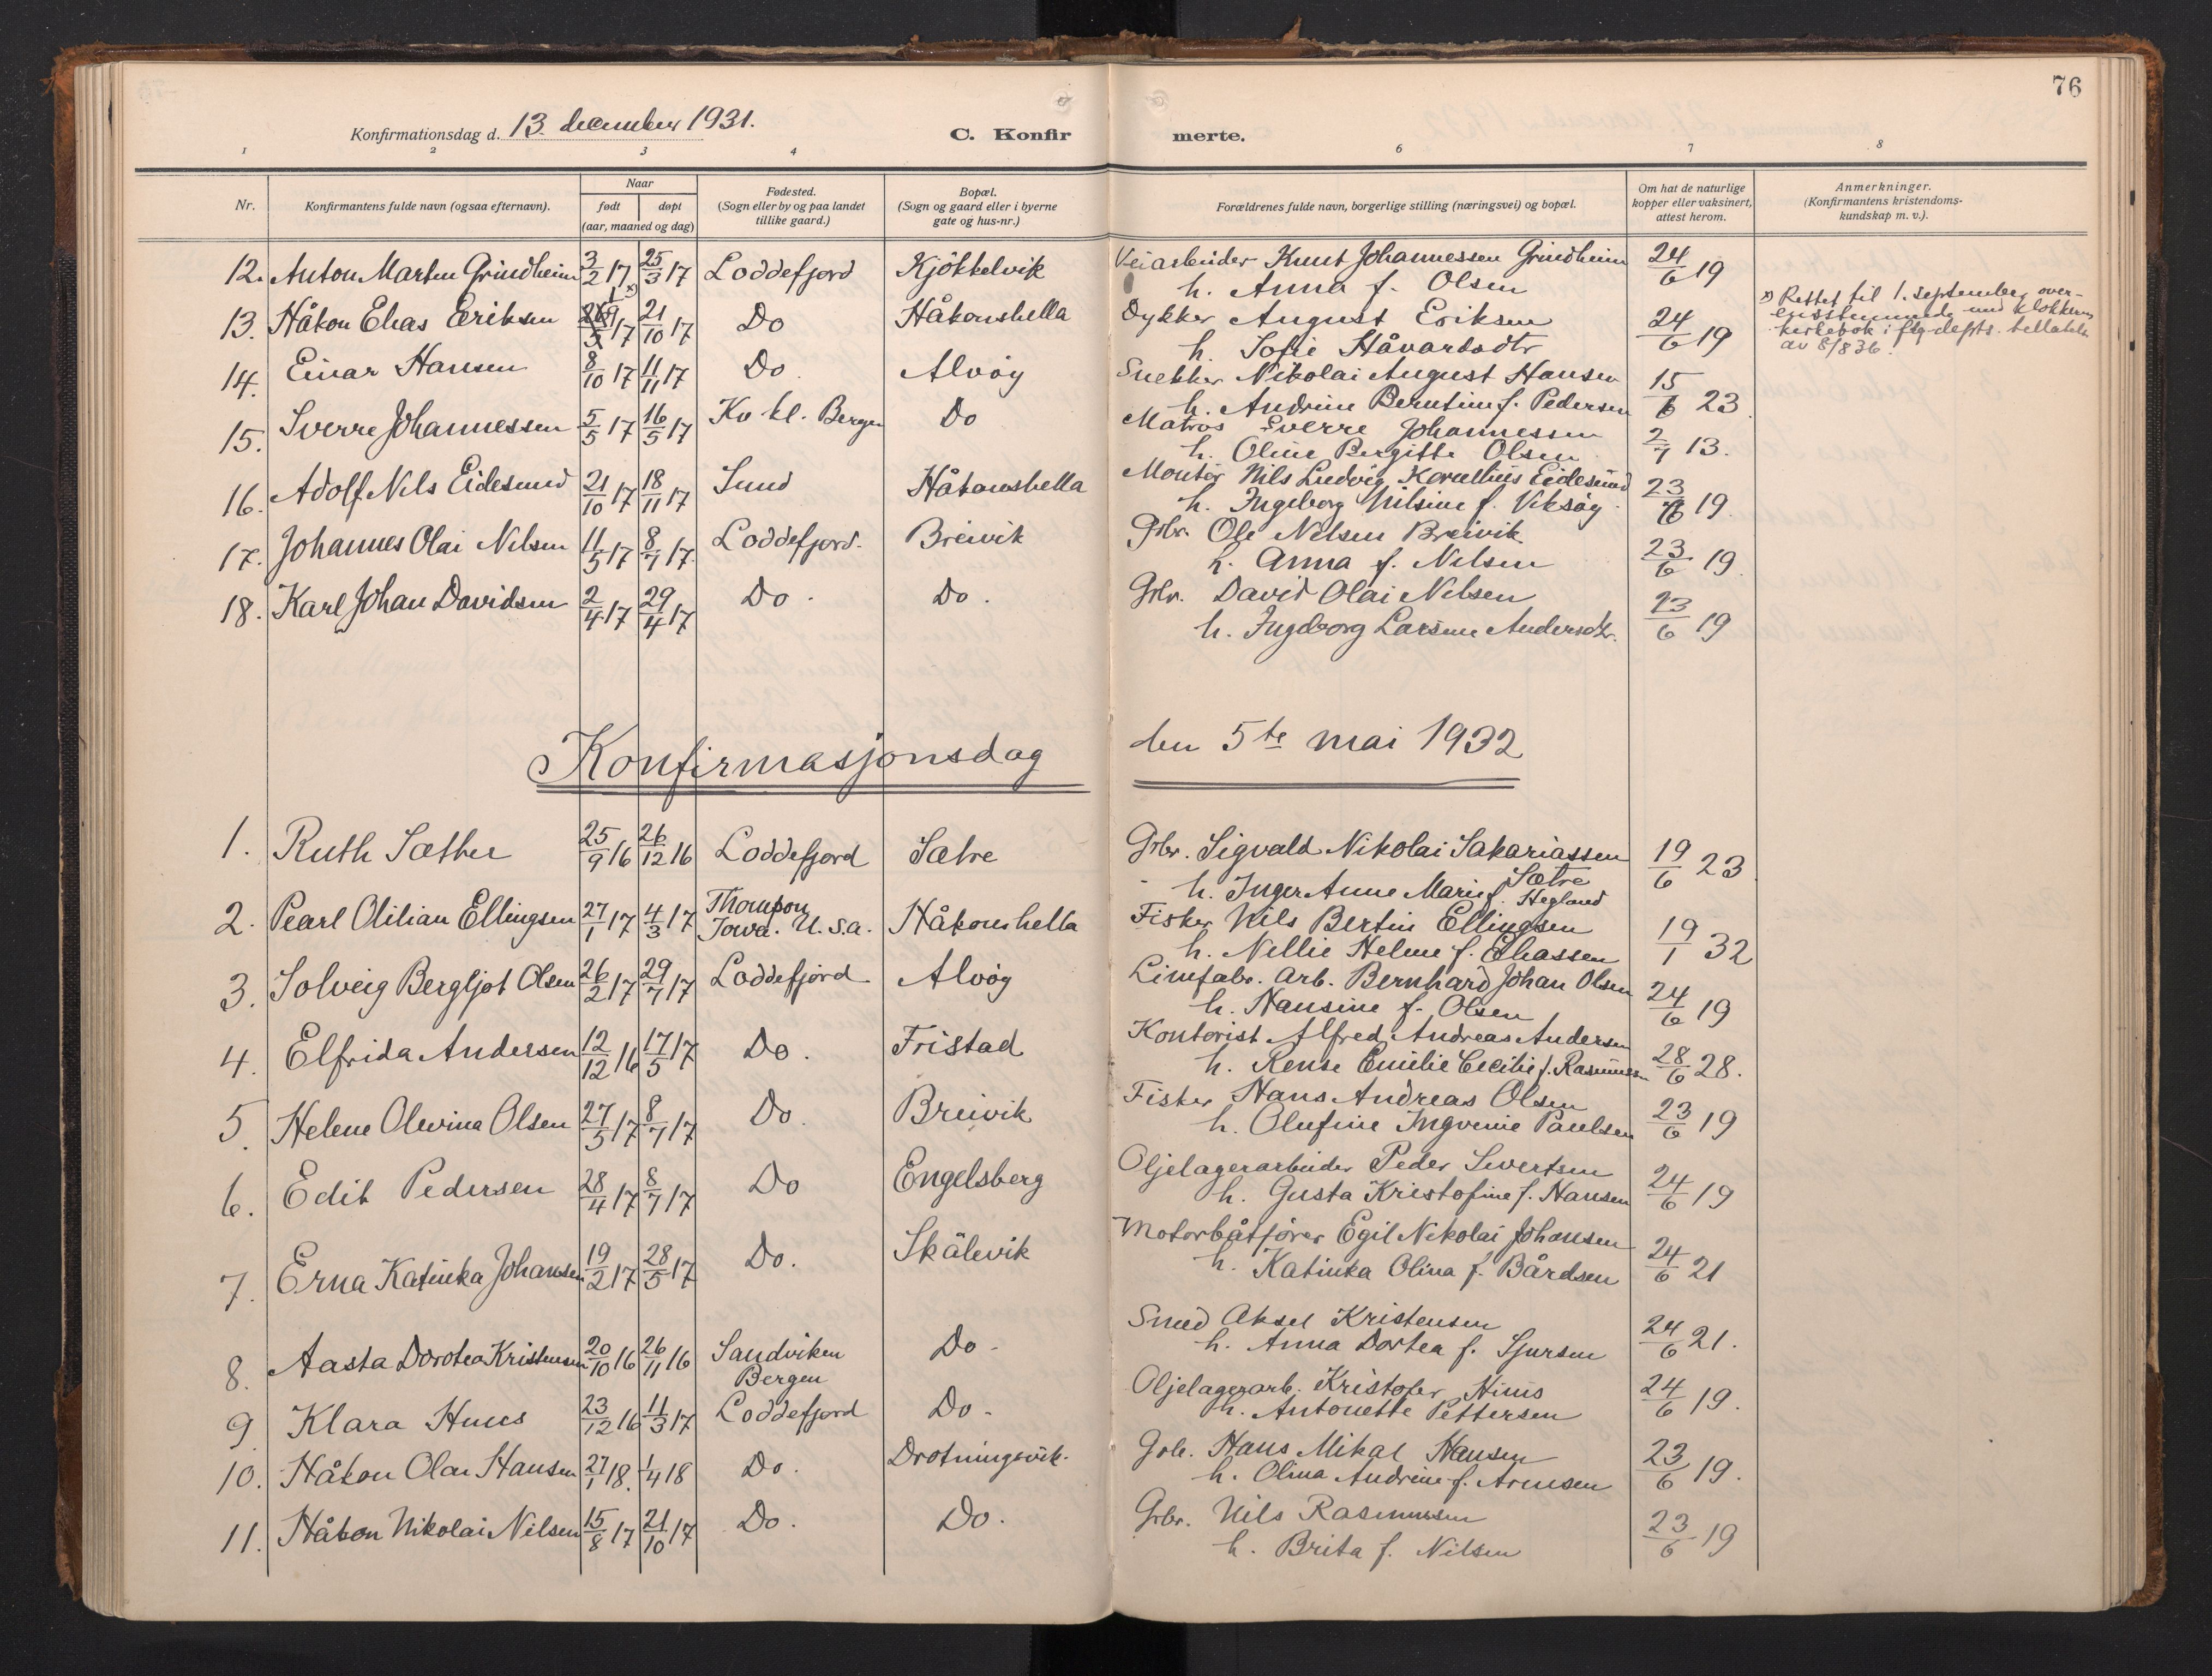 76
Konfirmationsdag d. 13. december 1931.
C. Konfir merte.
1 2 3 4 6 7 8
Nr.
Konfirmantens fulde navn (ogsaa efternavn).
Naar
født døpt
(aar, maaned og dag)
Fødested.
(Sogn eller by og paa landet
tillike gaard.)
Bopæl.
(Sogn og gaard eller i byerne
gate og hus-nr.)
Forældrenes fulde navn, borgerlige stilling (næringsvei) og bopæl.
Om hat de naturlige
kopper eller vaksinert,
attest herom.
Anmerkninger.
(Konfirmantens kristendoms-
kundskap m. v.).
12. Anton Martin Grindheim 3/2 17 25/3 17 Loddefjord Kjökkelvik Veiarbeider Knut Johannessen Grindheim 24/6 19
h. Anna f. Olsen
13. Håkon Elias Eriksen 1/9 17 x) 21/10 17 Do Håkonshella Dykker August Eriksen 24/6 19
h. Sofie Håvardsdtr
x) Rettet til 1. september over-
ensstemmende med klokkerens
kirkebok i flg. depts. tillatelse
av 8/8 36.
14. Einar Hansen 8/10 17 11/11 17 Do. Alvöy Snekker Nikolai August Hansen 15/6 23.
h. Andrine Berntine f. Pedersen
15. Sverre Johannessen 5/5 17 16/5 17 Kv kl. Bergen Do Matros Sverre Johannessen 2/7 13.
h. Oline Bergitte Olsen
16. Adolf Nils Eidesund 21/10 17 18/11 17 Sund Håkonshella Montör Nils Ludvig Kornelius Eidesund 23/6 19.
h. Ingeborg Nilsine f. Viksöy.
17. Johannes Olai Nilsen 11/5 17 8/7 17. Loddefjord. Breivik Grbr. Ole Nilsen Breivik 23/6 19.
h. Anna f. Nilsen
18. Karl Johan Davidsen 2/4 17 29/4 17 Do. Do. Grbr. David Olai Nilsen 23/6 19
h. Ingeborg Larsine Andersdtr.
Konfirmasjonsdag den 5te mai 1932
1. Ruth Sæther 25/9 16 26/12 16 Loddefjord Sætre Grbr. Sigvald Nikolai Sakariassen Sætre 19/6 23.
h. Inger Anne Marie f. Hegland
2. Pearl Olilian Ellingsen 27/1 17 4/3 17 Thompson Iowa. U.S.A. Håkonshella Fisker Nils Bertin Ellingsen 19/1 32
h. Nellie Helene f. Eliassen
3. Solveig Bergljot Olsen 26/2 17 29/7 17 Loddefjord Alvöy Limfabr. arb. Bernhard Johan Olsen 24/6 19
h. Hansine f. Olsen
4. Elfrida Andersen 12/12 16 17/5 17 Do. Fristad Kontorist Alfred Andreas Andersen 28/6 28.
h. Rense Emilie Cecilie f. Rasmussen
5. Helene Olevina Olsen 27/5 17 8/7 17 Do. Breivik Fisker Hans Andreas Olsen 23/6 19
h. Olufine Ingvine Paulsen
6. Edit Pedersen 28/4 17 8/7 17 Do Engelsberg Oljelagerarbeider Peder Sivertsen 24/6 19
h. Gusta Kristofine f. Hansen
7. Erna Katinka Johansen 19/2 17 28/5 17 Do. Skålevik Motorbåtförer Egil Nikolai Johansen 24/6 21
h. Katinka Olina f. Bårdsen
8. Aasta Dorotea Kristensen 20/10 16 26/11 16 Sandviken Bergen Do. Smed Aksel Kristensen 24/6 21.
h. Anna Dortea f. Sjursen
9. Klara Hiis 23/12 16 11/3 17 Loddefjord Do. Oljelagerarb. Kristofer Hiis 24/6 19.
h. Antonette Pettersen
10. Håkon Olai Hansen 27/1 18. 1/4 18 Do. Drotningsvik. Grbr. Hans Mikal Hansen 23/6 19.
h. Olina Andrine f. Arnesen
11. Håkon Nikolai Nilsen 15/8 17 21/10 17 Do. Do. Grbr. Nils Rasmussen 23/6 19
h. Brita f. Nilsen